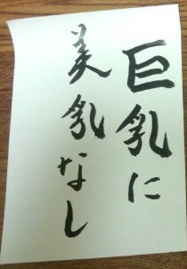 巨乳に
美乳なし